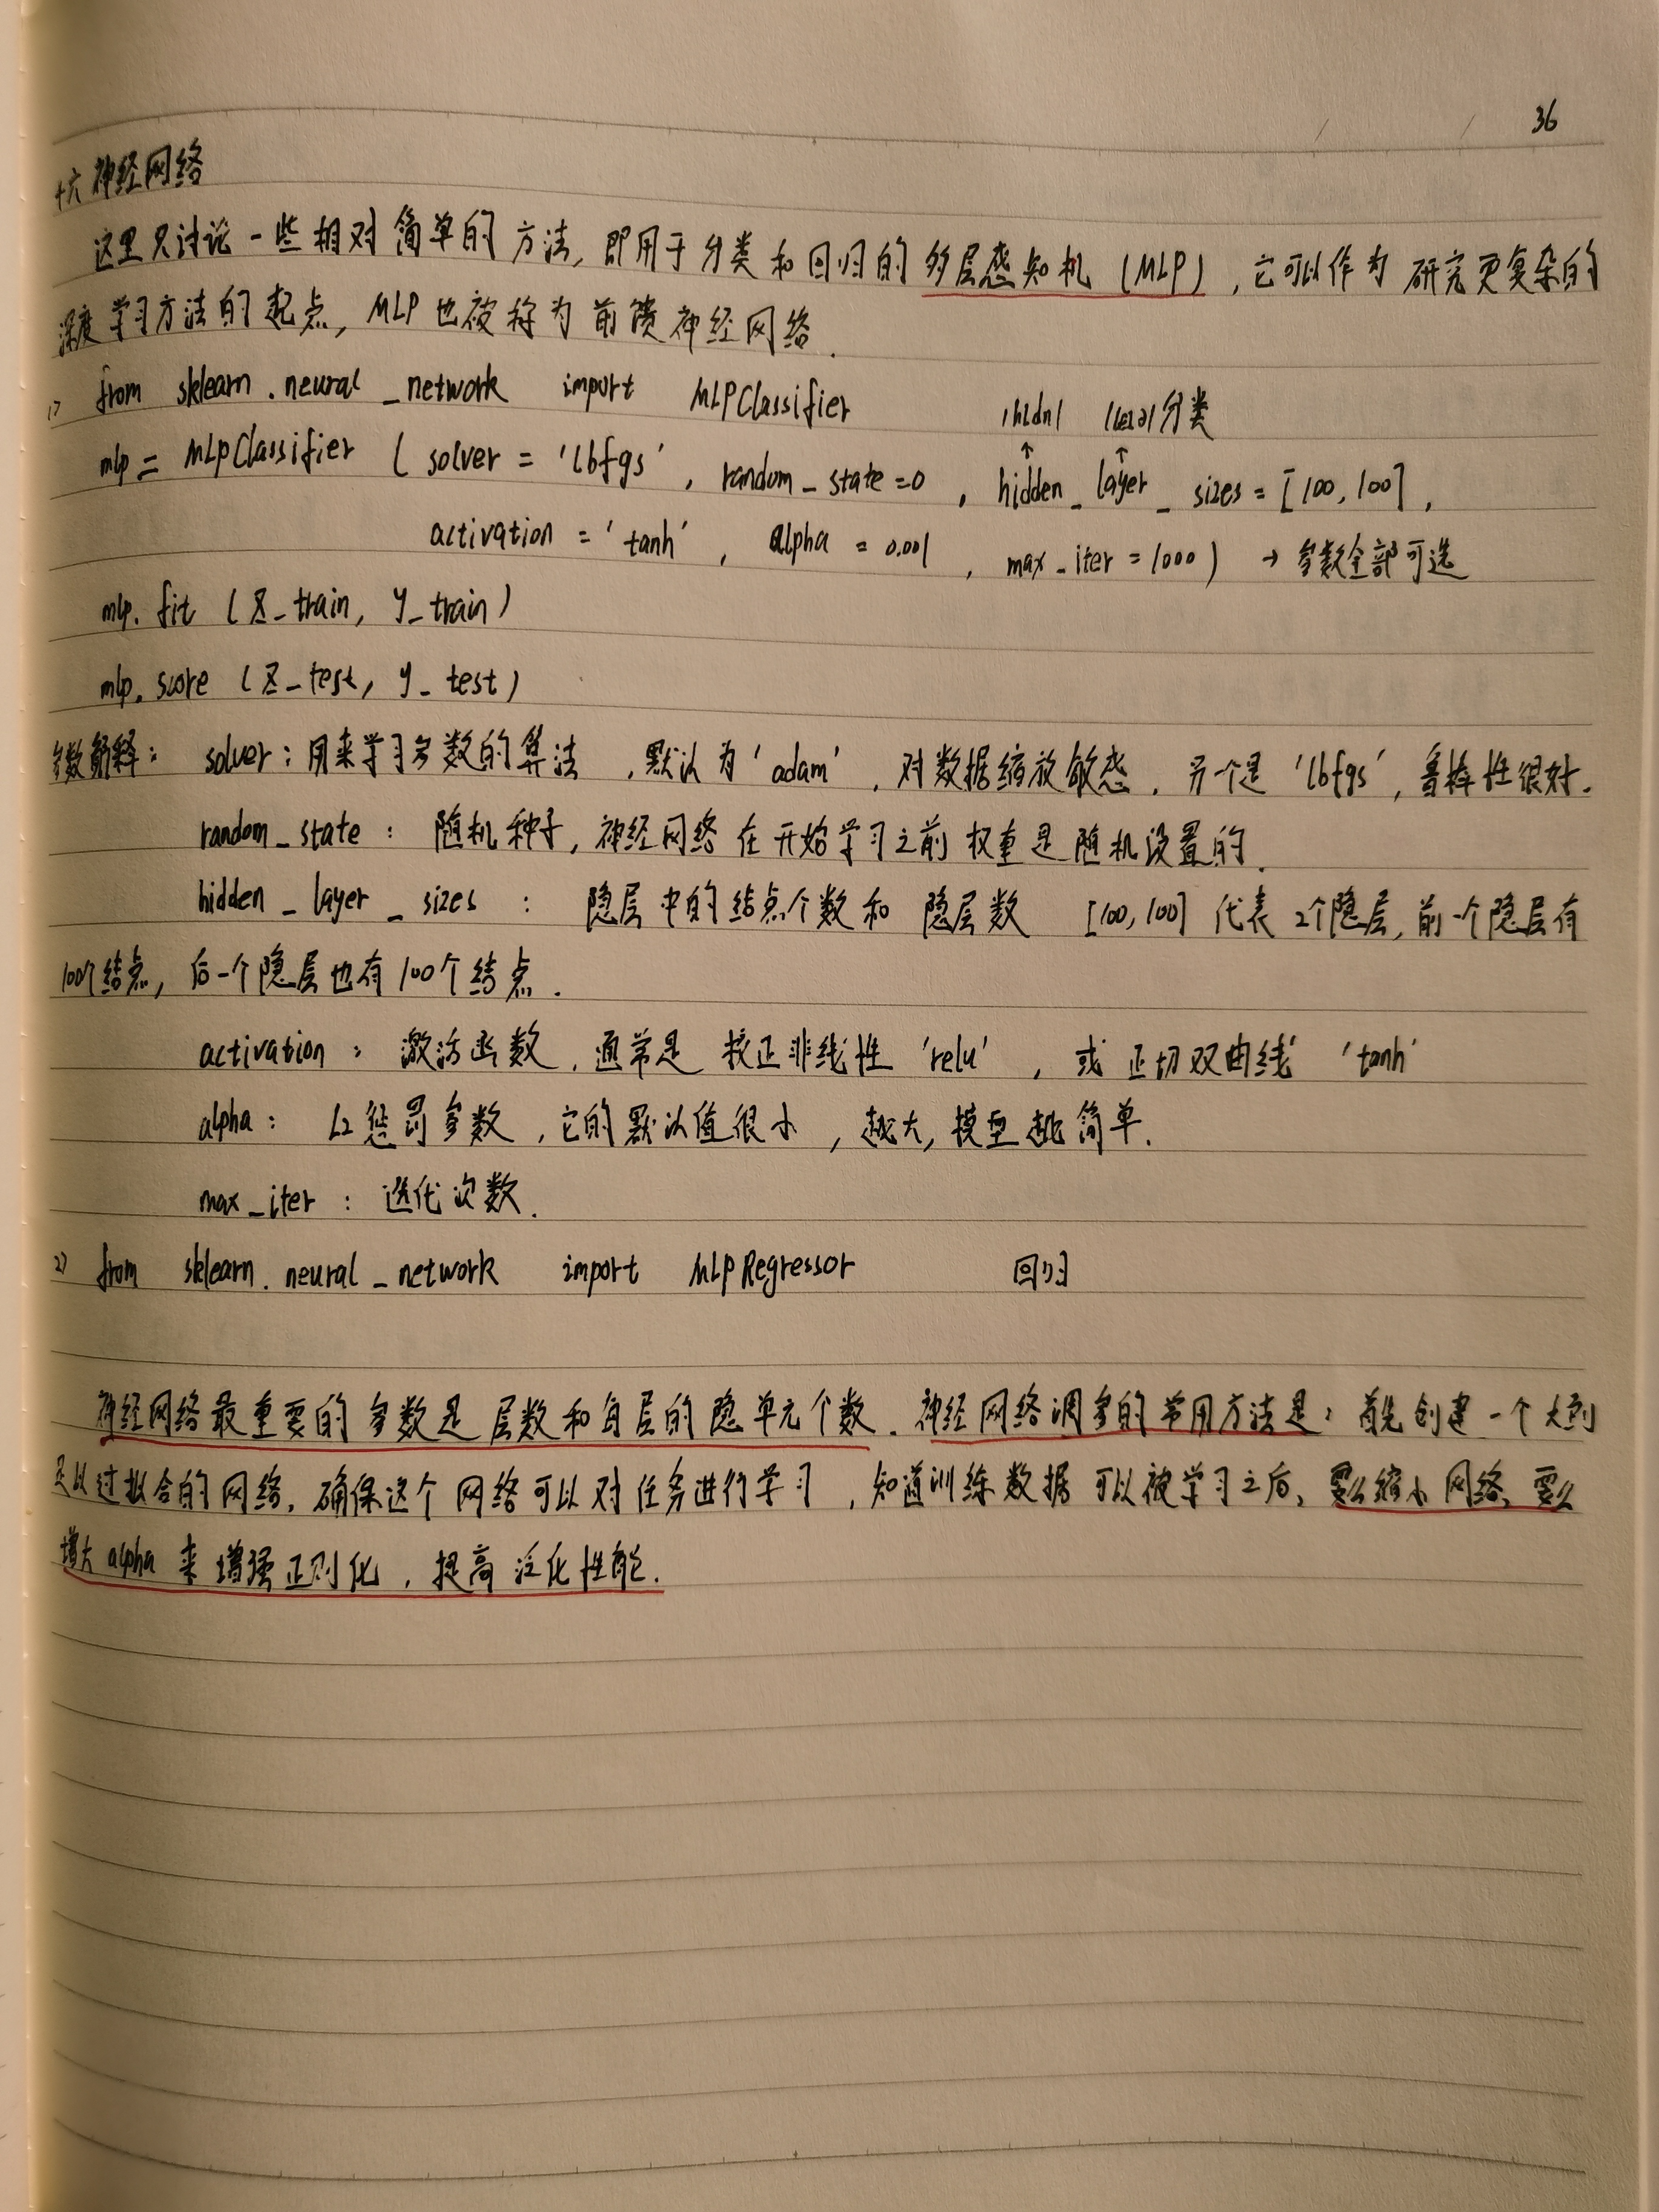 36
十六 神经网络
这里只讨论一些相对简单的方法, 即用于分类和回归的多层感知机 (MLP), 它可以作为研究更复杂的
深度学习方法的起点, MLP也被称为前馈神经网络.
1) from sklearn.neural_network import MLPClassifier 分类
mlp = MLPClassifier ( solver = 'lbfgs', random_state=0, hidden_layer_sizes = [100,100],
activation = 'tanh', alpha = 0.001, max_iter = 1000) → 参数全部可选
mlp.fit (X_train, y_train)
mlp.score (X_test, y_test)
参数解释: solver: 用来学习参数的算法, 默认为'adam', 对数据缩放敏感. 另一个是'lbfgs', 鲁棒性很好.
random_state: 随机种子, 神经网络在开始学习之前权重是随机设置的.
hidden_layer_sizes: 隐层中的结点个数和隐层数 [100,100] 代表2个隐层, 前一个隐层有
100个结点, 后一个隐层也有100个结点.
activation: 激活函数, 通常是校正非线性 'relu', 或正切双曲线 'tanh'
alpha: L2惩罚参数, 它的默认值很小, 越大, 模型越简单.
max_iter: 迭代次数.
2) from sklearn.neural_network import MLPRegressor 回归
神经网络最重要的参数是层数和每层的隐单元个数. 神经网络调参的常用方法是: 首先创建一个大到
足以过拟合的网络, 确保这个网络可以对任务进行学习, 知道训练数据可以被学习之后, 要么缩小网络, 要么
增大alpha来增强正则化, 提高泛化性能.